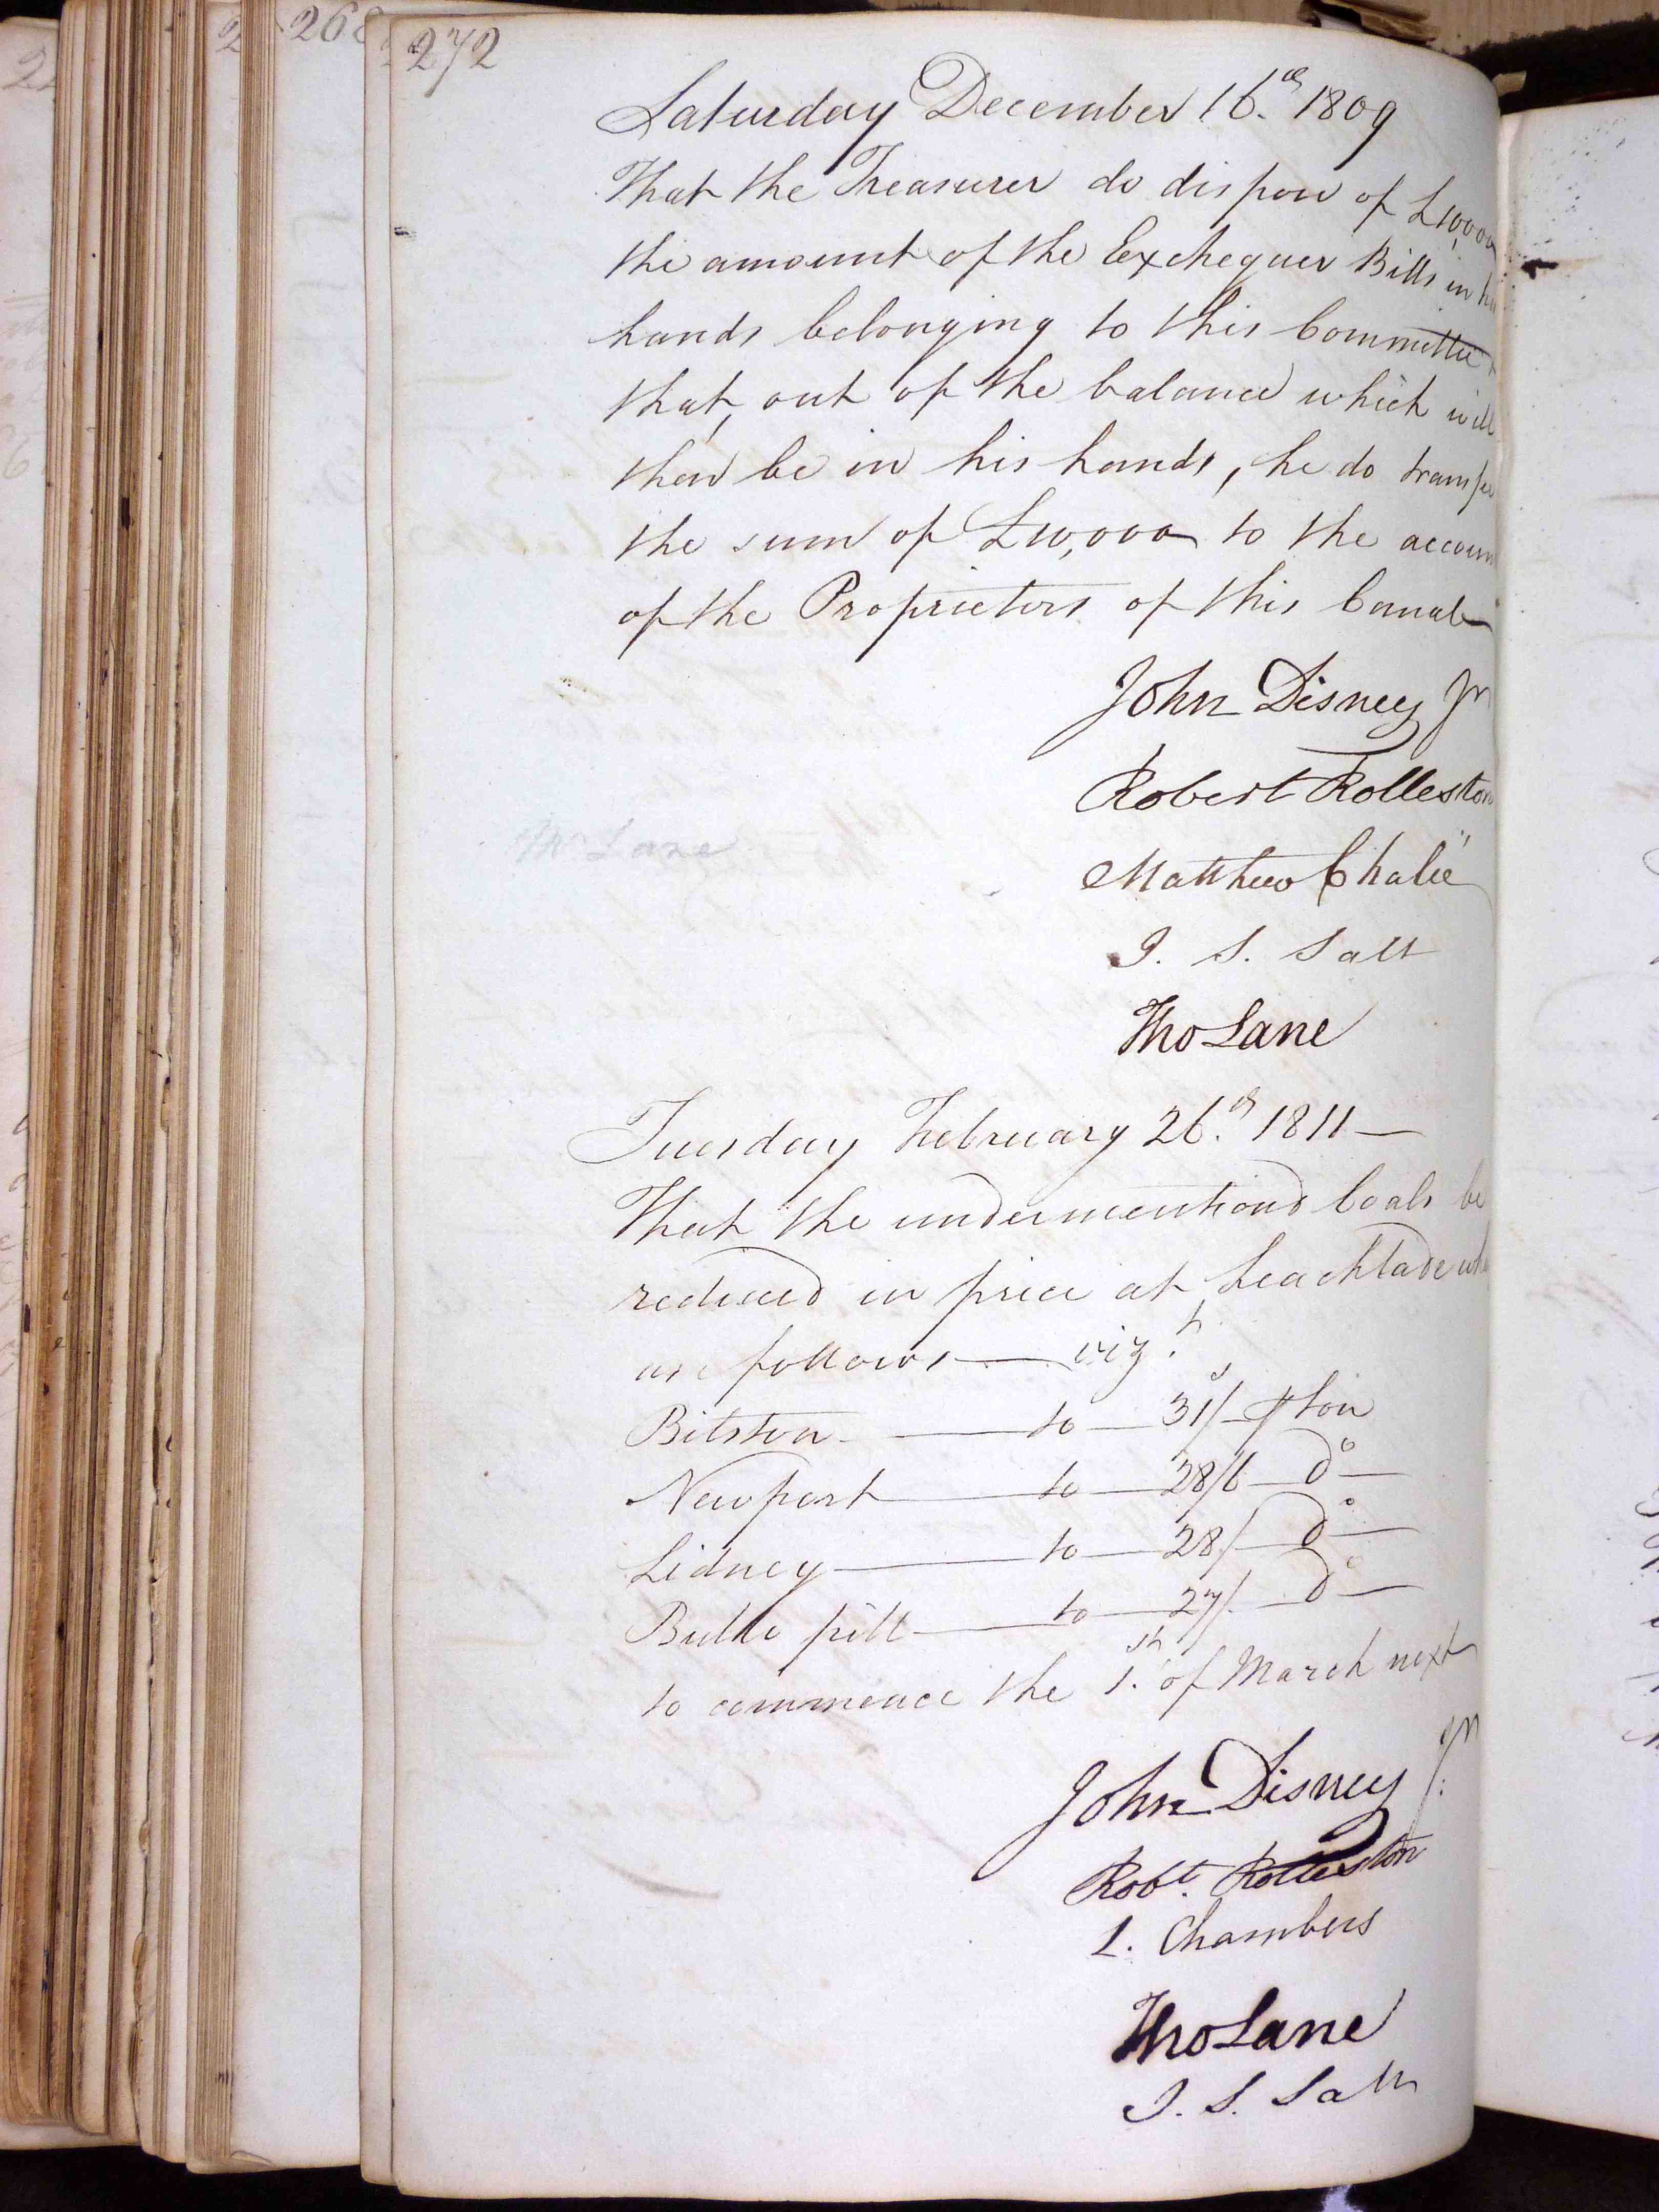 268
272
Saturday December 16.th 1809
That the Treasurer do dispose of £10,000
the amount of the Exchequer Bills in his
hands belonging to this Committee &
that, out of the balance which will
then be in his hands, he do transfer
the sum of £10,000 to the account
of the Proprietors of this Canal
John Disney Jr
Robert Rolleston
Matthew Chalié
Mr Lane
J. S. Salt
Tho Lane
Tuesday February 26.th 1811—
That the undermentiond Coals be
reduced in price at Leachlade
as follows — viz.t
Bilston — to — 31/ ⅌ ton
Newport — to — 28/6 — Do —
Lidney — to — 28/ — Do —
Bullo pill — to — 27/ — Do —
to commence the 1.st of March next
John Disney Jr
Robt. Rolleston
L. Chambers
Tho Lane
J. S. Salt